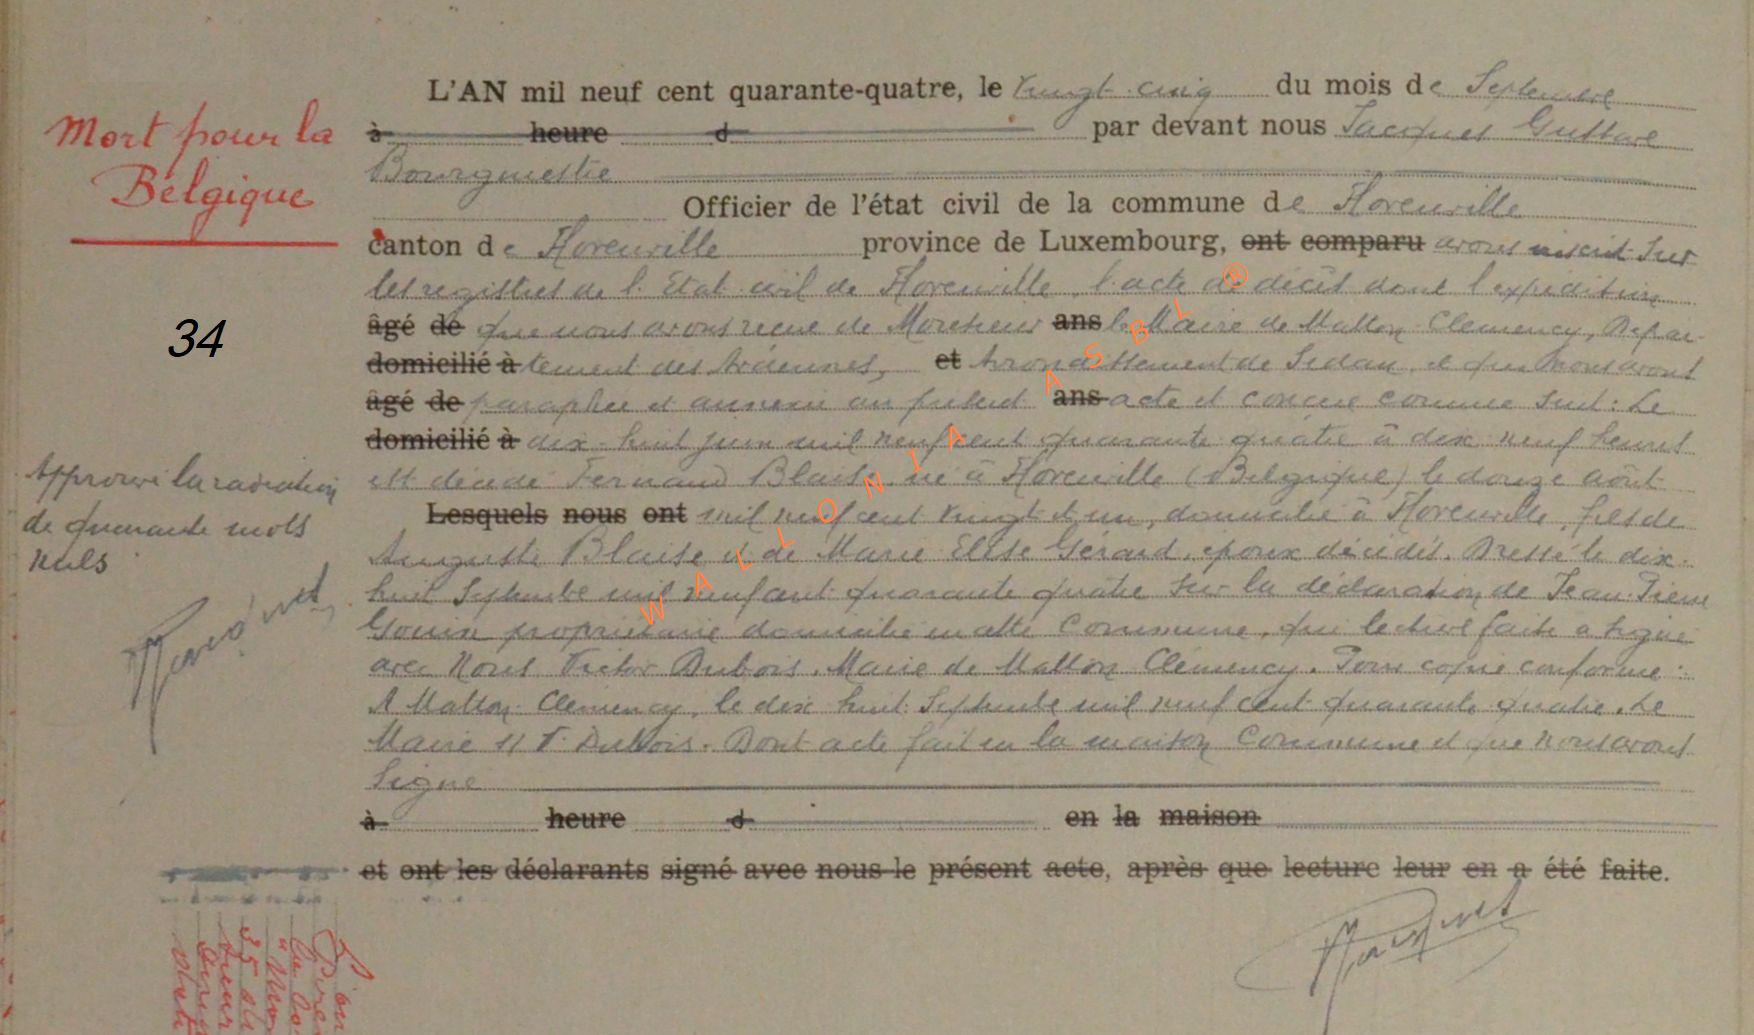 Mort pour la
Belgique
34
Approuvé la radiation
de quarante mots
nuls
L'AN mil neuf cent quarante-quatre, le vingt-cinq du mois de Septembre
à heure d par devant nous Jacques Gustave
Bourgmestre
Officier de l'état civil de la commune de Florenville
canton de Florenville province de Luxembourg, ont comparu avons inscrit sur
les registres de l'Etat civil de Florenville, l'acte de décès dont l'expédition
âgé de que nous avons reçue de Monsieur ans le Maire de Matton-Clémency, Dépar-
domicilié à tement des Ardennes, et Arrondissement de Sedan, et que nous avons
âgé de paraphée et annexée au présent ans acte et conçue comme suit: Le
domicilié à dix-huit juin mil neuf cent quarante quatre à dix neuf heures
est décédé Fernand Blaise, né à Florenville (Belgique) le douze août
Lesquels nous ont mil neuf cent vingt et un, domicilié à Florenville, fils de
Auguste Blaise et de Marie Elise Gérard, époux décédés. Dressé le dix-
huit Septembre mil neuf cent quarante quatre sur la déclaration de Jean-Pierre
Gouin propriétaire domicilié en cette Commune, qui lecture faite a signé
avec Nous Victor Dubois, Maire de Matton Clémency. Pour copie conforme:
A Matton-Clémency, le dix huit Septembre mil neuf cent quarante quatre. Le
Maire V. Dubois. Dont acte fait en la maison Commune et que nous avons
signé
à heure d en la maison
et ont les déclarants signé avec nous le présent acte, après que lecture leur en a été faite.
WALLONIA ASBL ®